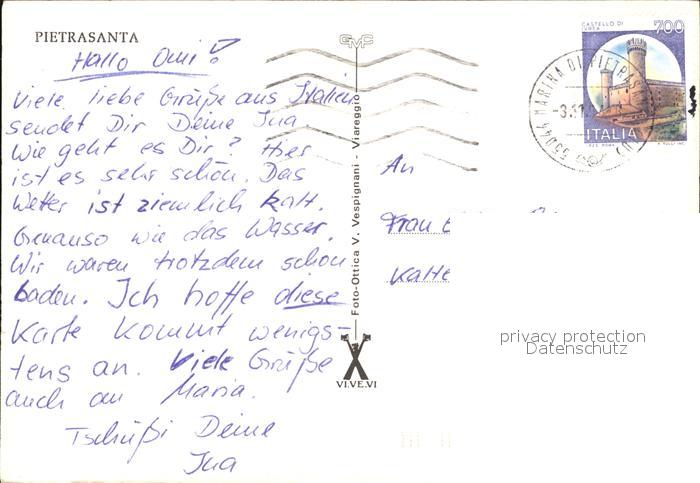 PIETRASANTA
Hallo Omi!
Viele liebe Grüße aus Italien
sendet Dir Deine Ina
Wie geht es Dir? Hier
ist es sehr schön. Das
Wetter ist ziemlich kalt.
Genauso wie das Wasser.
Wir waren trotzdem schon
baden. Ich hoffe diese
Karte kommt wenigs-
tens an. Viele Grüße
auch an Maria.
Tschüßi Deine
Ina
GMC
Foto-Ottica V. Vespignani - Viareggio
VI.VE.VI
CASTELLO DI
IVREA
700
ITALIA
55044 MARINA DI PIETRASANTA
An
Frau
privacy protection
Datenschutz